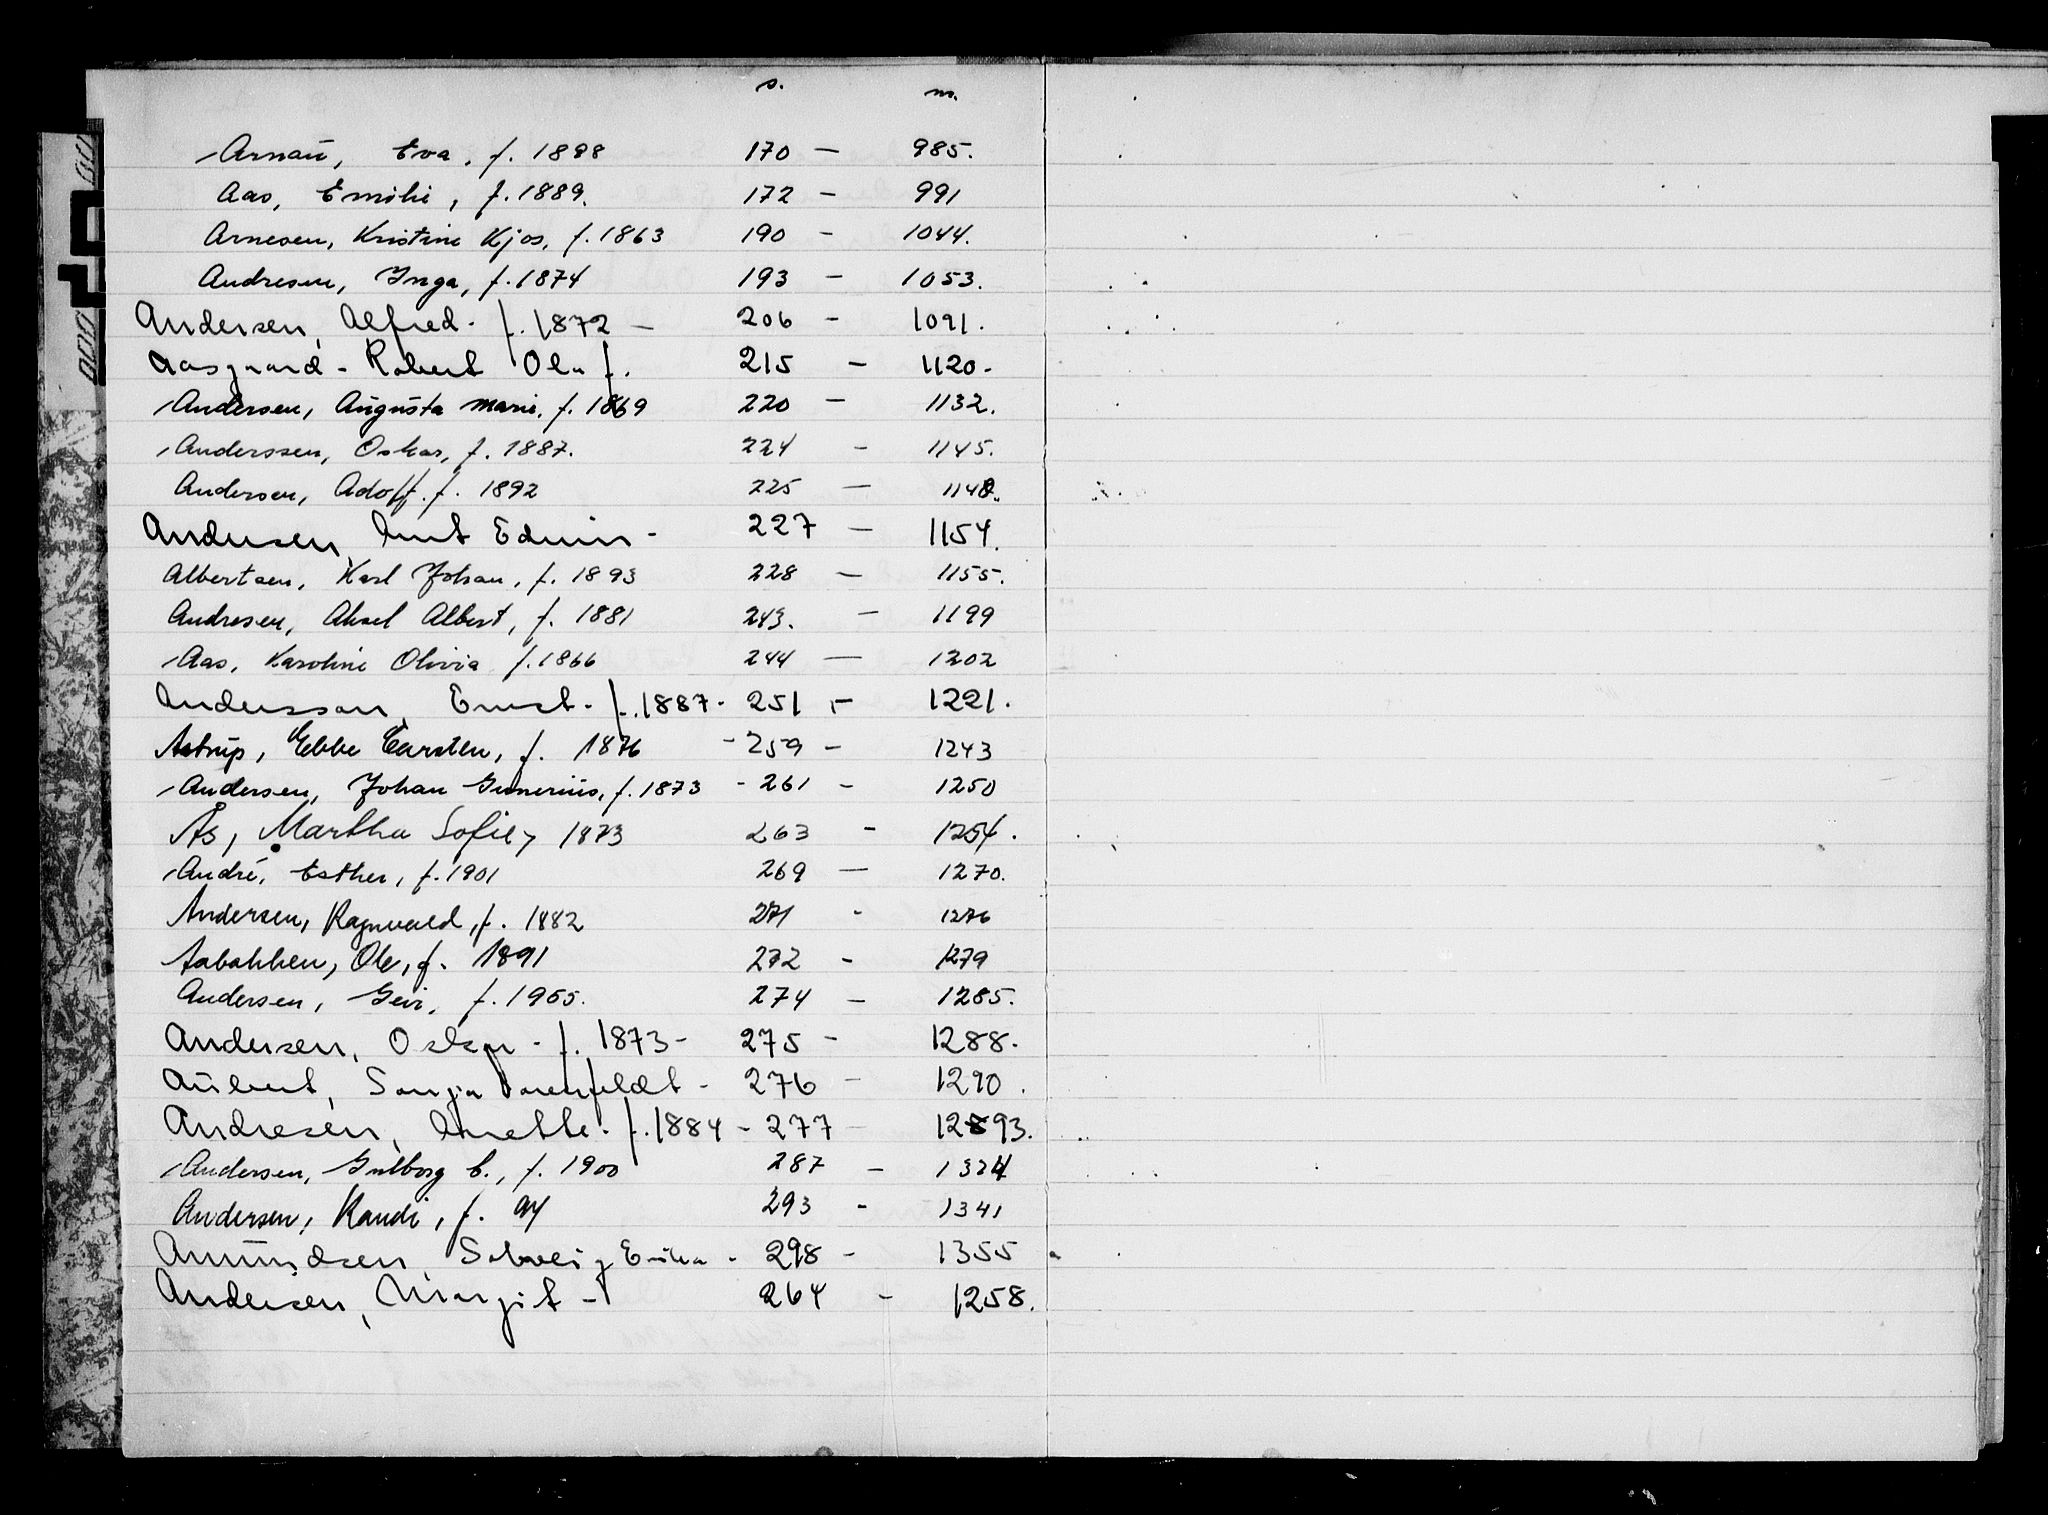 s. m.
Arnaŭ, Eva, f. 1898 170 — 985.
Aas, Emilie, f. 1889. 172 - 991
Arnesen, Kristine Kjos, f. 1863 190 - 1044.
Andresen, Inga, f. 1874 193 - 1053.
Andersen, Alfred - f. 1872 — 206 - 1091.
Aasgaard - Robert Olaf. 215 - 1120.
Andersen, Augusta Marie, f. 1869 220 - 1132.
Anderssen, Oskar, f. 1887. 224 - 1145.
Andersen, Adolf. f. 1892 225 — 1148.
Andersen, Knut Edwin - 227 — 1154.
Albertsen, Karl Johan, f. 1893 228 — 1155.
Andresen, Aksel Albert, f. 1881 243. — 1199
Aas, Karoline Olivia f. 1866 244 — 1202
Andersson, Ernst - f. 1887 - 251 - 1221.
Astrup, Ebbe Carsten, f. 1876 - 259 - 1243
Andersen, Johan Gunerius, f. 1873 - 261 - 1250
Ås, Martha Sofie, 1873 263 - 1254.
André, Esther, f. 1901 269 — 1270.
Andersen, Ragnvald, f. 1882 271 - 1276
Aabakken, Ole, f. 1891 272 - 1279
Andersen, Geir, f. 1955. 274 — 1285.
Andersen, Oskar - f. 1873 - 275 - 1288.
Aubert, Sonja - 276 - 1290.
Andresen, Anette - f. 1884 - 277 - 12893.
Andersen, Gulborg C., f. 1900 287 - 1324
Andersen, Randi, f. 94 293 - 1341
Amundsen, Solveig Erika - 298 - 1355
Andersen, Margit - 264 - 1258.